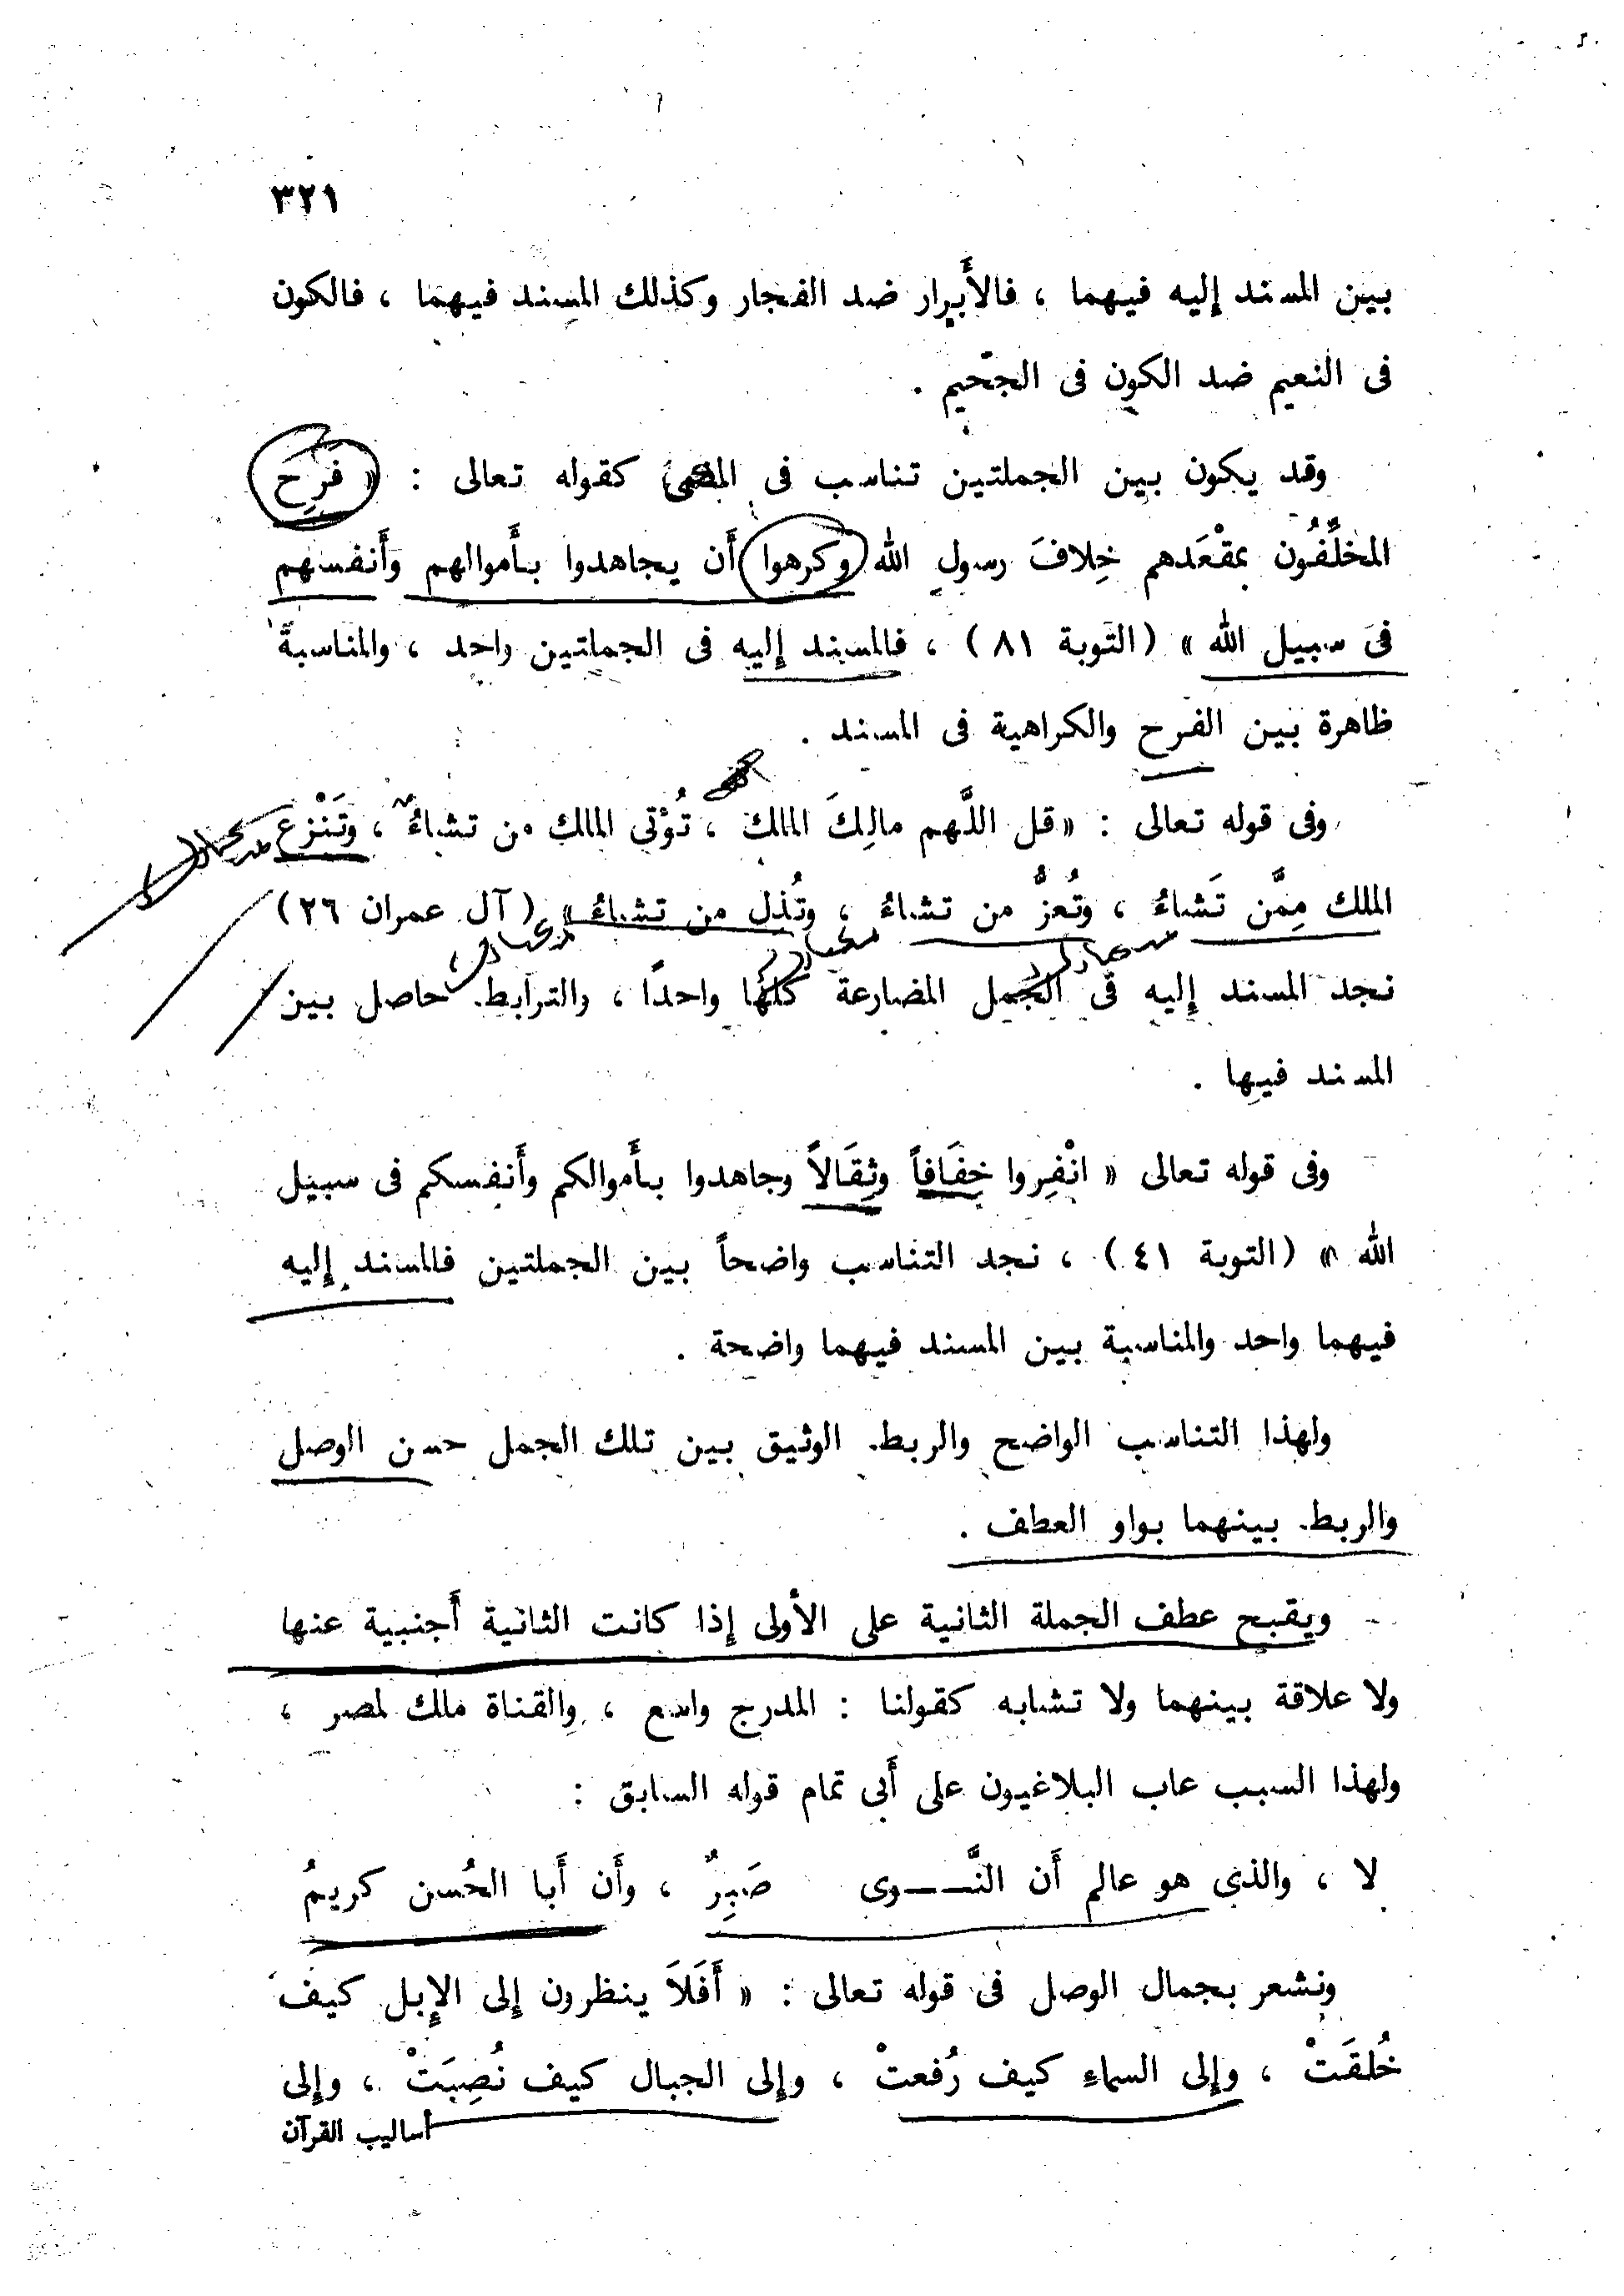 ٣٢١
بين المسند إليه فيهما ، فالأَبرار ضد الفجار وكذلك المسند فيهما ، فالكون
فى النعيم ضد الكون فى الجحيم .
وقد يكون بين الجملتين تناسب فى المعنى كقوله تعالى : « فرِح
المخلَّفُون بمقْعَدهم خِلافَ رسول الله وكرهوا أَن يجاهدوا بأَموالهم وأَنفسهم
فى سبيل الله » (التوبة ٨١) ، فالمسند إليه فى الجملتين واحد ، والمناسبة
ظاهرة بين الفرح والكراهية فى المسند .
وفى قوله تعالى : «قل اللَّهم مالِكَ الملك ، تُؤْتى الملك من تشاءُ ، وتَنْزع
الملك مِمَّن تَشاءُ ، وتُعزُّ من تشاءُ ، وتُذِل من تشاءُ » (آل عمران ٢٦)
نجد المسند إليه فى الجمل المضارعة كلها واحدًا ، والترابط حاصل بين
المسند فيها .
وفى قوله تعالى « انْفِروا خِفَافاً وثِقَالاً وجاهدوا بأَموالكم وأَنفسكم فى سبيل
الله » (التوبة ٤١) ، نجد التناسب واضحاً بين الجملتين فالمسند إليه
فيهما واحد والمناسبة بين المسند فيهما واضحة .
ولهذا التناسب الواضح والربط الوثيق بين تلك الجمل حسن الوصل
والربط بينهما بواو العطف .
ويقبح عطف الجملة الثانية على الأولى إذا كانت الثانية أَجنبية عنها
ولا علاقة بينهما ولا تشابه كقولنا : المدرج واسع ، والقناة ملك لمصر ،
ولهذا السبب عاب البلاغيون على أَبى تمام قوله السابق :
لا ، والذى هو عالم أَن النَّــوى صَبِرٌ ، وأَن أَبا الحُسن كريمُ
ونشعر بجمال الوصل فى قوله تعالى : « أَفَلاَ ينظرون إلى الإِبل كيف
خُلقَتْ ، وإلى السماءِ كيف رُفعتْ ، وإلى الجبال كيف نُصِبَتْ ، وإلى
أساليب القرآن